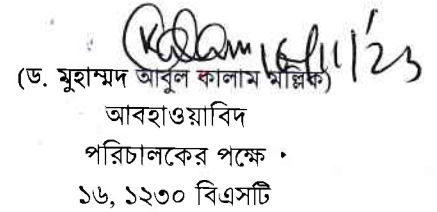 16/11/23
(ড. মুহাম্মদ আবুল কালাম মল্লিক)
আবহাওয়াবিদ
পরিচালকের পক্ষে
১৬, ১২৩০ বিএসটি